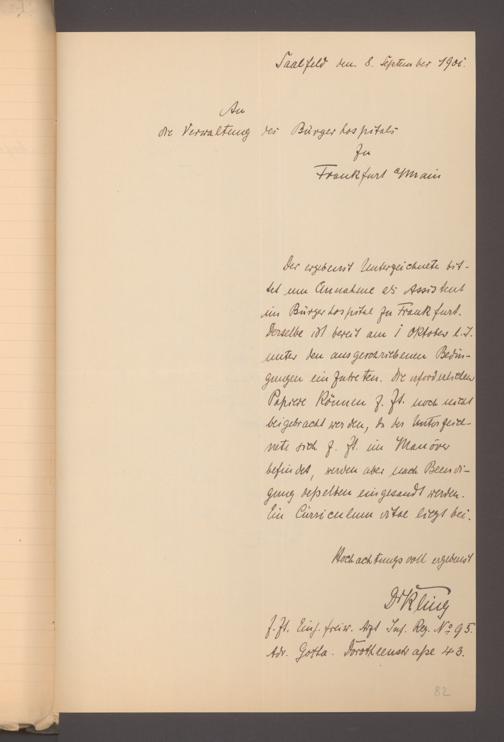 Saalfeld den 8. September 1901.
An
die Verwaltung des Bürgerhospitals
zu
Frankfurt a/Main
Der ergebenst Unterzeichnete bit-
tet um Annahme als Assistent
im Bürgerhospital zu Frankfurt.
Derselbe ist bereit am 1 Oktober d. J.
unter den ausgeschriebenen Bedin-
gungen einzutreten. Die erforderlichen
Papiere können z. Zt. noch nicht
beigebracht werden, da der Unterzeich-
nete sich z. Zt. im Manöver
befindet, werden aber nach Beendi-
gung desselben eingesandt werden.
Ein Curriculum vitae liegt bei.
Hochachtungsvoll ergebenst
Dr Kling
z. Zt. Einj. freiw. Arzt Inf. Reg. No 95.
Adr. Gotha. Dorotheenstraße 43.
82